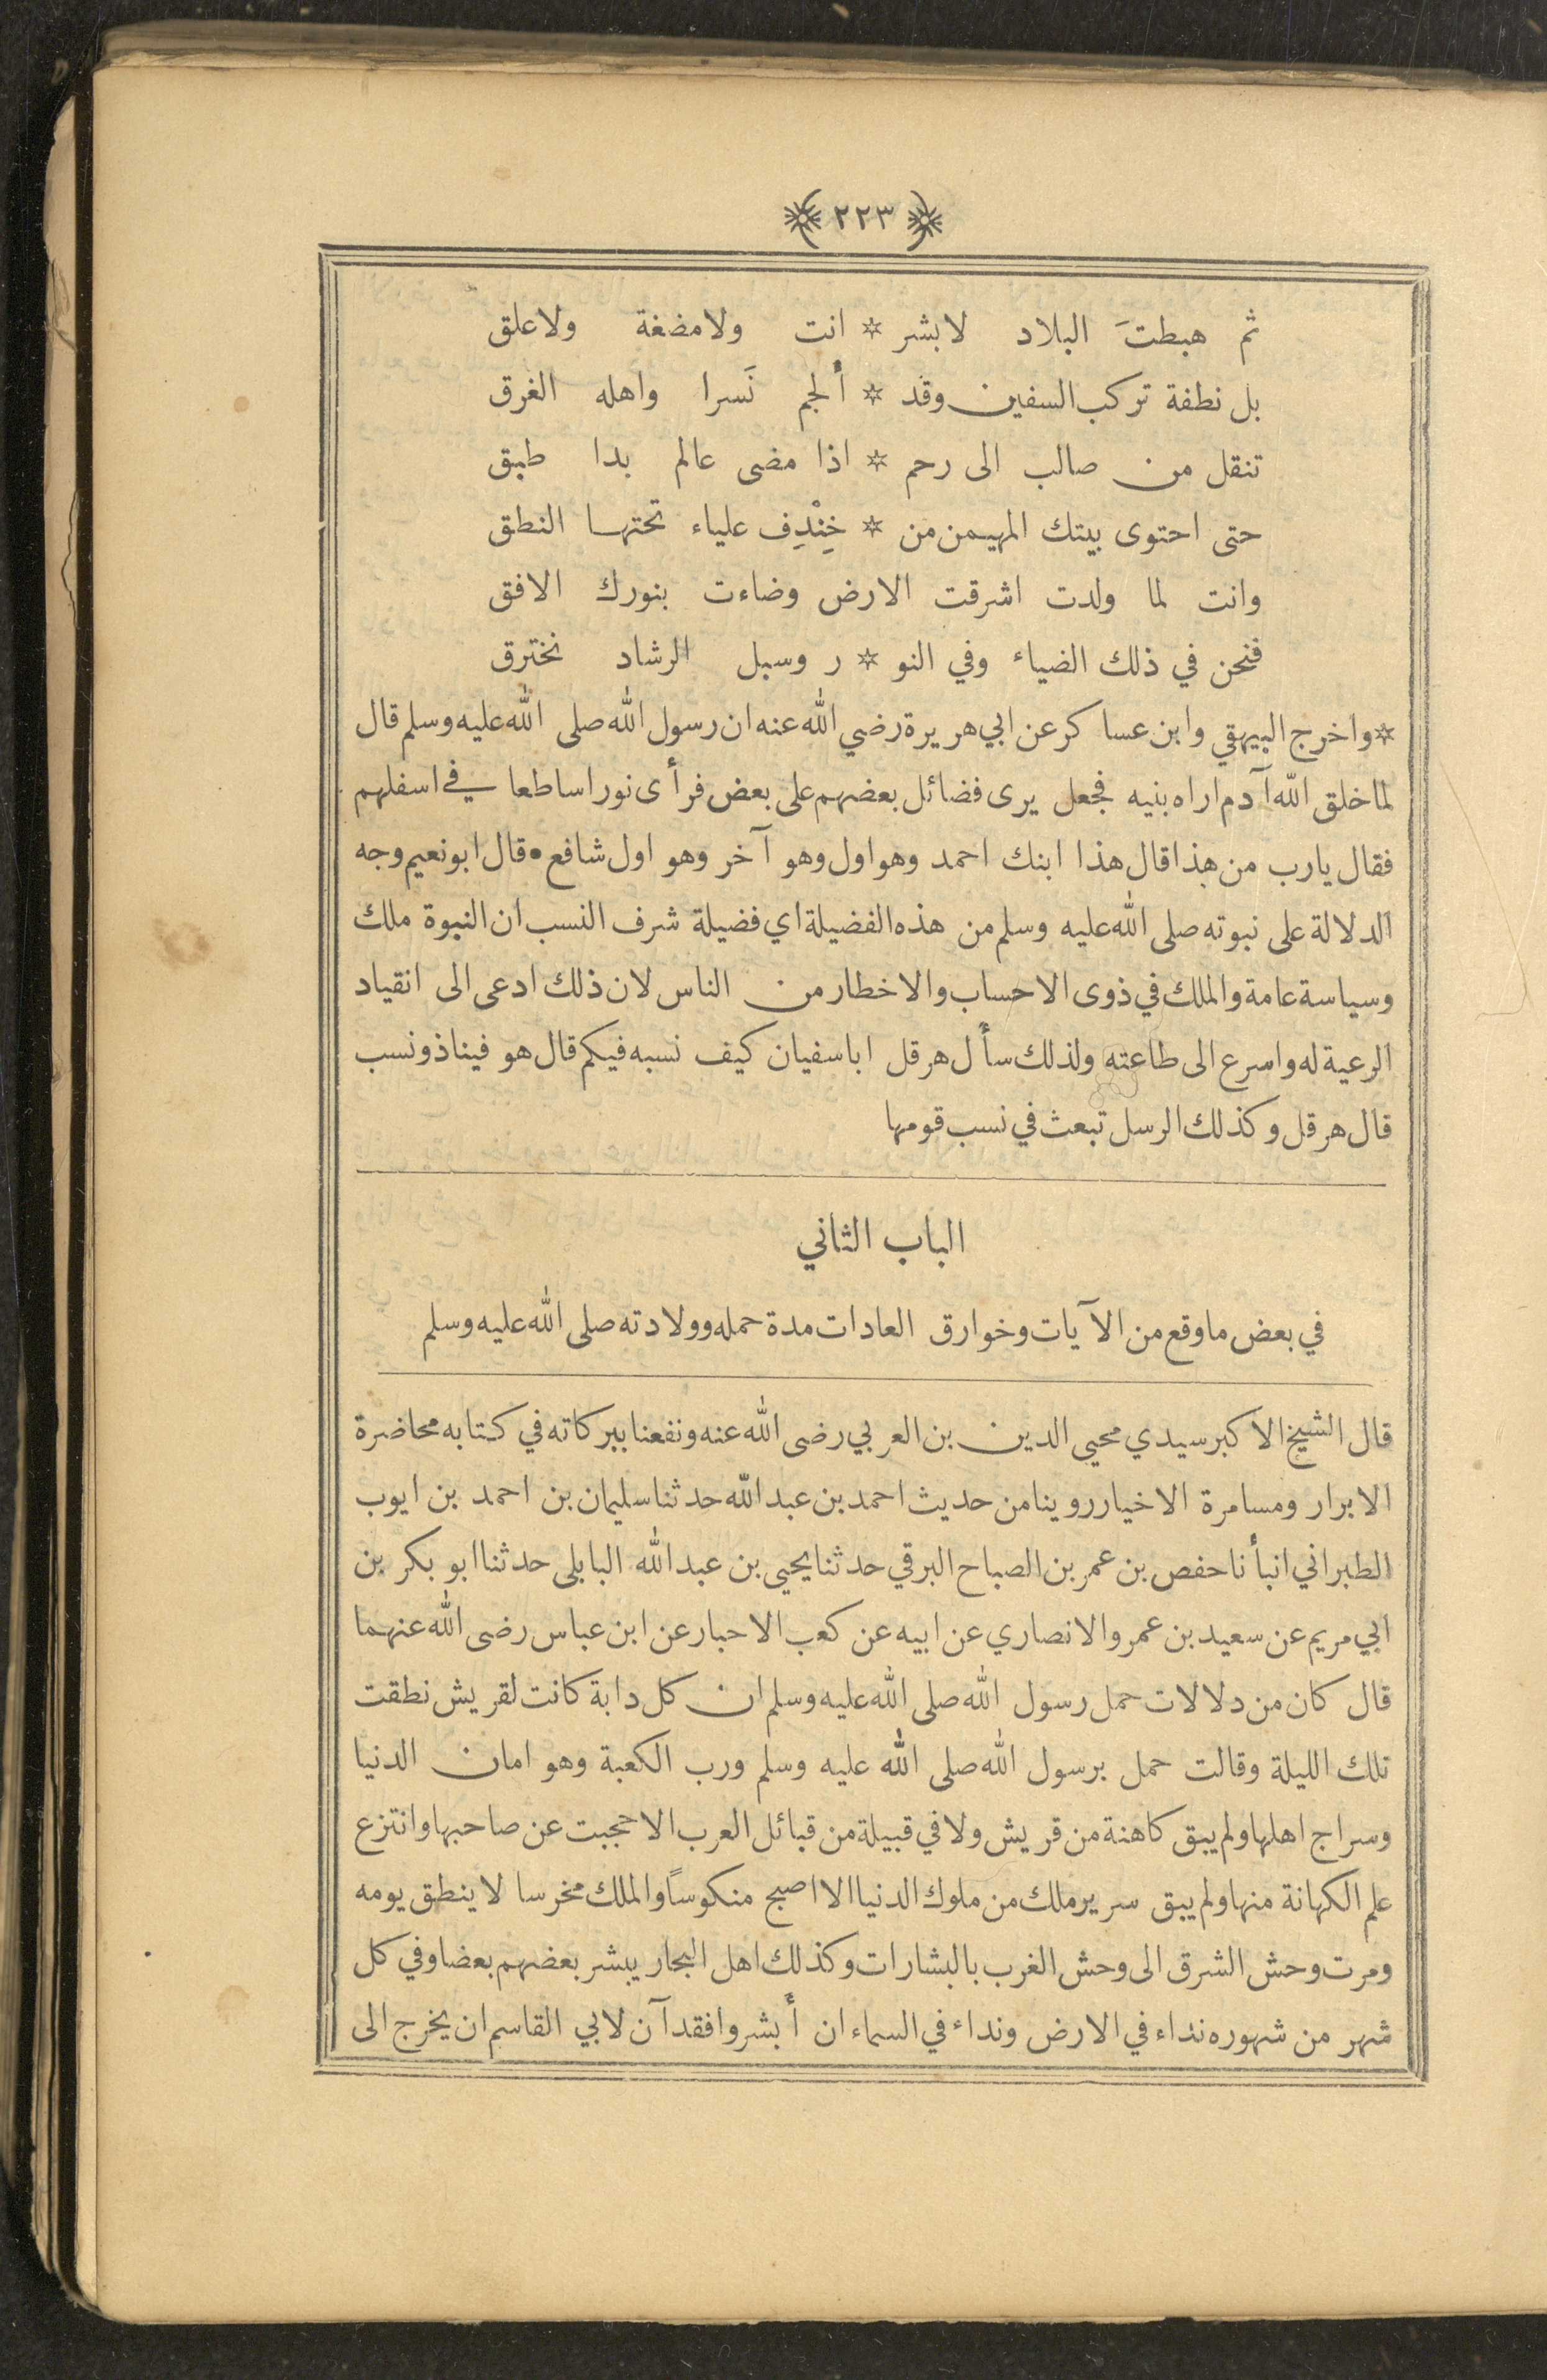 ٢٢٣
ثم هبطتَ البلاد لا بشر * انت ولا مضغة ولا علق
بل نطفة تركب السفين وقد * ألجم نَسرا واهله الغرق
تنقل من صالب الى رحم * اذا مضى عالم بدا طبق
حتى احتوى بيتك المهيمن من * خِنْدِف علياء تحتها النطق
وانت لما ولدت اشرقت الارض وضاءت بنورك الافق
فنحن في ذلك الضياء وفي النو * ر وسبل الرشاد نخترق
* واخرج البيهقي وابن عساكر عن ابي هريرة رضي الله عنه ان رسول الله صلى الله عليه وسلم قال
لما خلق الله آدم اراه بنيه فجعل يرى فضائل بعضهم على بعض فرأى نورا ساطعا في اسفلهم
فقال يارب من هذا قال هذا ابنك احمد وهو اول وهو آخر وهو اول شافع • قال ابو نعيم وجه
الدلالة على نبوته صلى الله عليه وسلم من هذه الفضيلة اي فضيلة شرف النسب ان النبوة ملك
وسياسة عامة والملك في ذوى الاحساب والاخطار من الناس لان ذلك ادعى الى انقياد
الرعية له واسرع الى طاعته ولذلك سأل هرقل ابا سفيان كيف نسبه فيكم قال هو فينا ذو نسب
قال هرقل وكذلك الرسل تبعث في نسب قومها
الباب الثاني
في بعض ما وقع من الآيات وخوارق العادات مدة حمله وولادته صلى الله عليه وسلم
قال الشيخ الاكبر سيدي محيي الدين بن العربي رضى الله عنه ونفعنا ببركاته في كتابه محاضرة
الابرار ومسامرة الاخيار روينا من حديث احمد بن عبد الله حدثنا سليمان بن احمد بن ايوب
الطبراني انبأنا حفص بن عمر بن الصباح البرقي حدثنا يحيى بن عبد الله البابلى حدثنا ابو بكر بن
ابي مريم عن سعيد بن عمرو الانصاري عن ابيه عن كعب الاحبار عن ابن عباس رضى الله عنهما
قال كان من دلالات حمل رسول الله صلى الله عليه وسلم ان كل دابة كانت لقريش نطقت
تلك الليلة وقالت حمل برسول الله صلى الله عليه وسلم ورب الكعبة وهو امان الدنيا
وسراج اهلها ولم يبق كاهنة من قريش ولا في قبيلة من قبائل العرب الا حجبت عن صاحبها وانتزع
علم الكهانة منها ولم يبق سرير ملك من ملوك الدنيا الا اصبح منكوساً والملك مخرسا لا ينطق يومه
ومرت وحش الشرق الى وحش الغرب بالبشارات وكذلك اهل البحار يبشر بعضهم بعضا وفي كل
شهر من شهوره نداء في الارض ونداء في السماء ان أبشروا فقد آن لابي القاسم ان يخرج الى